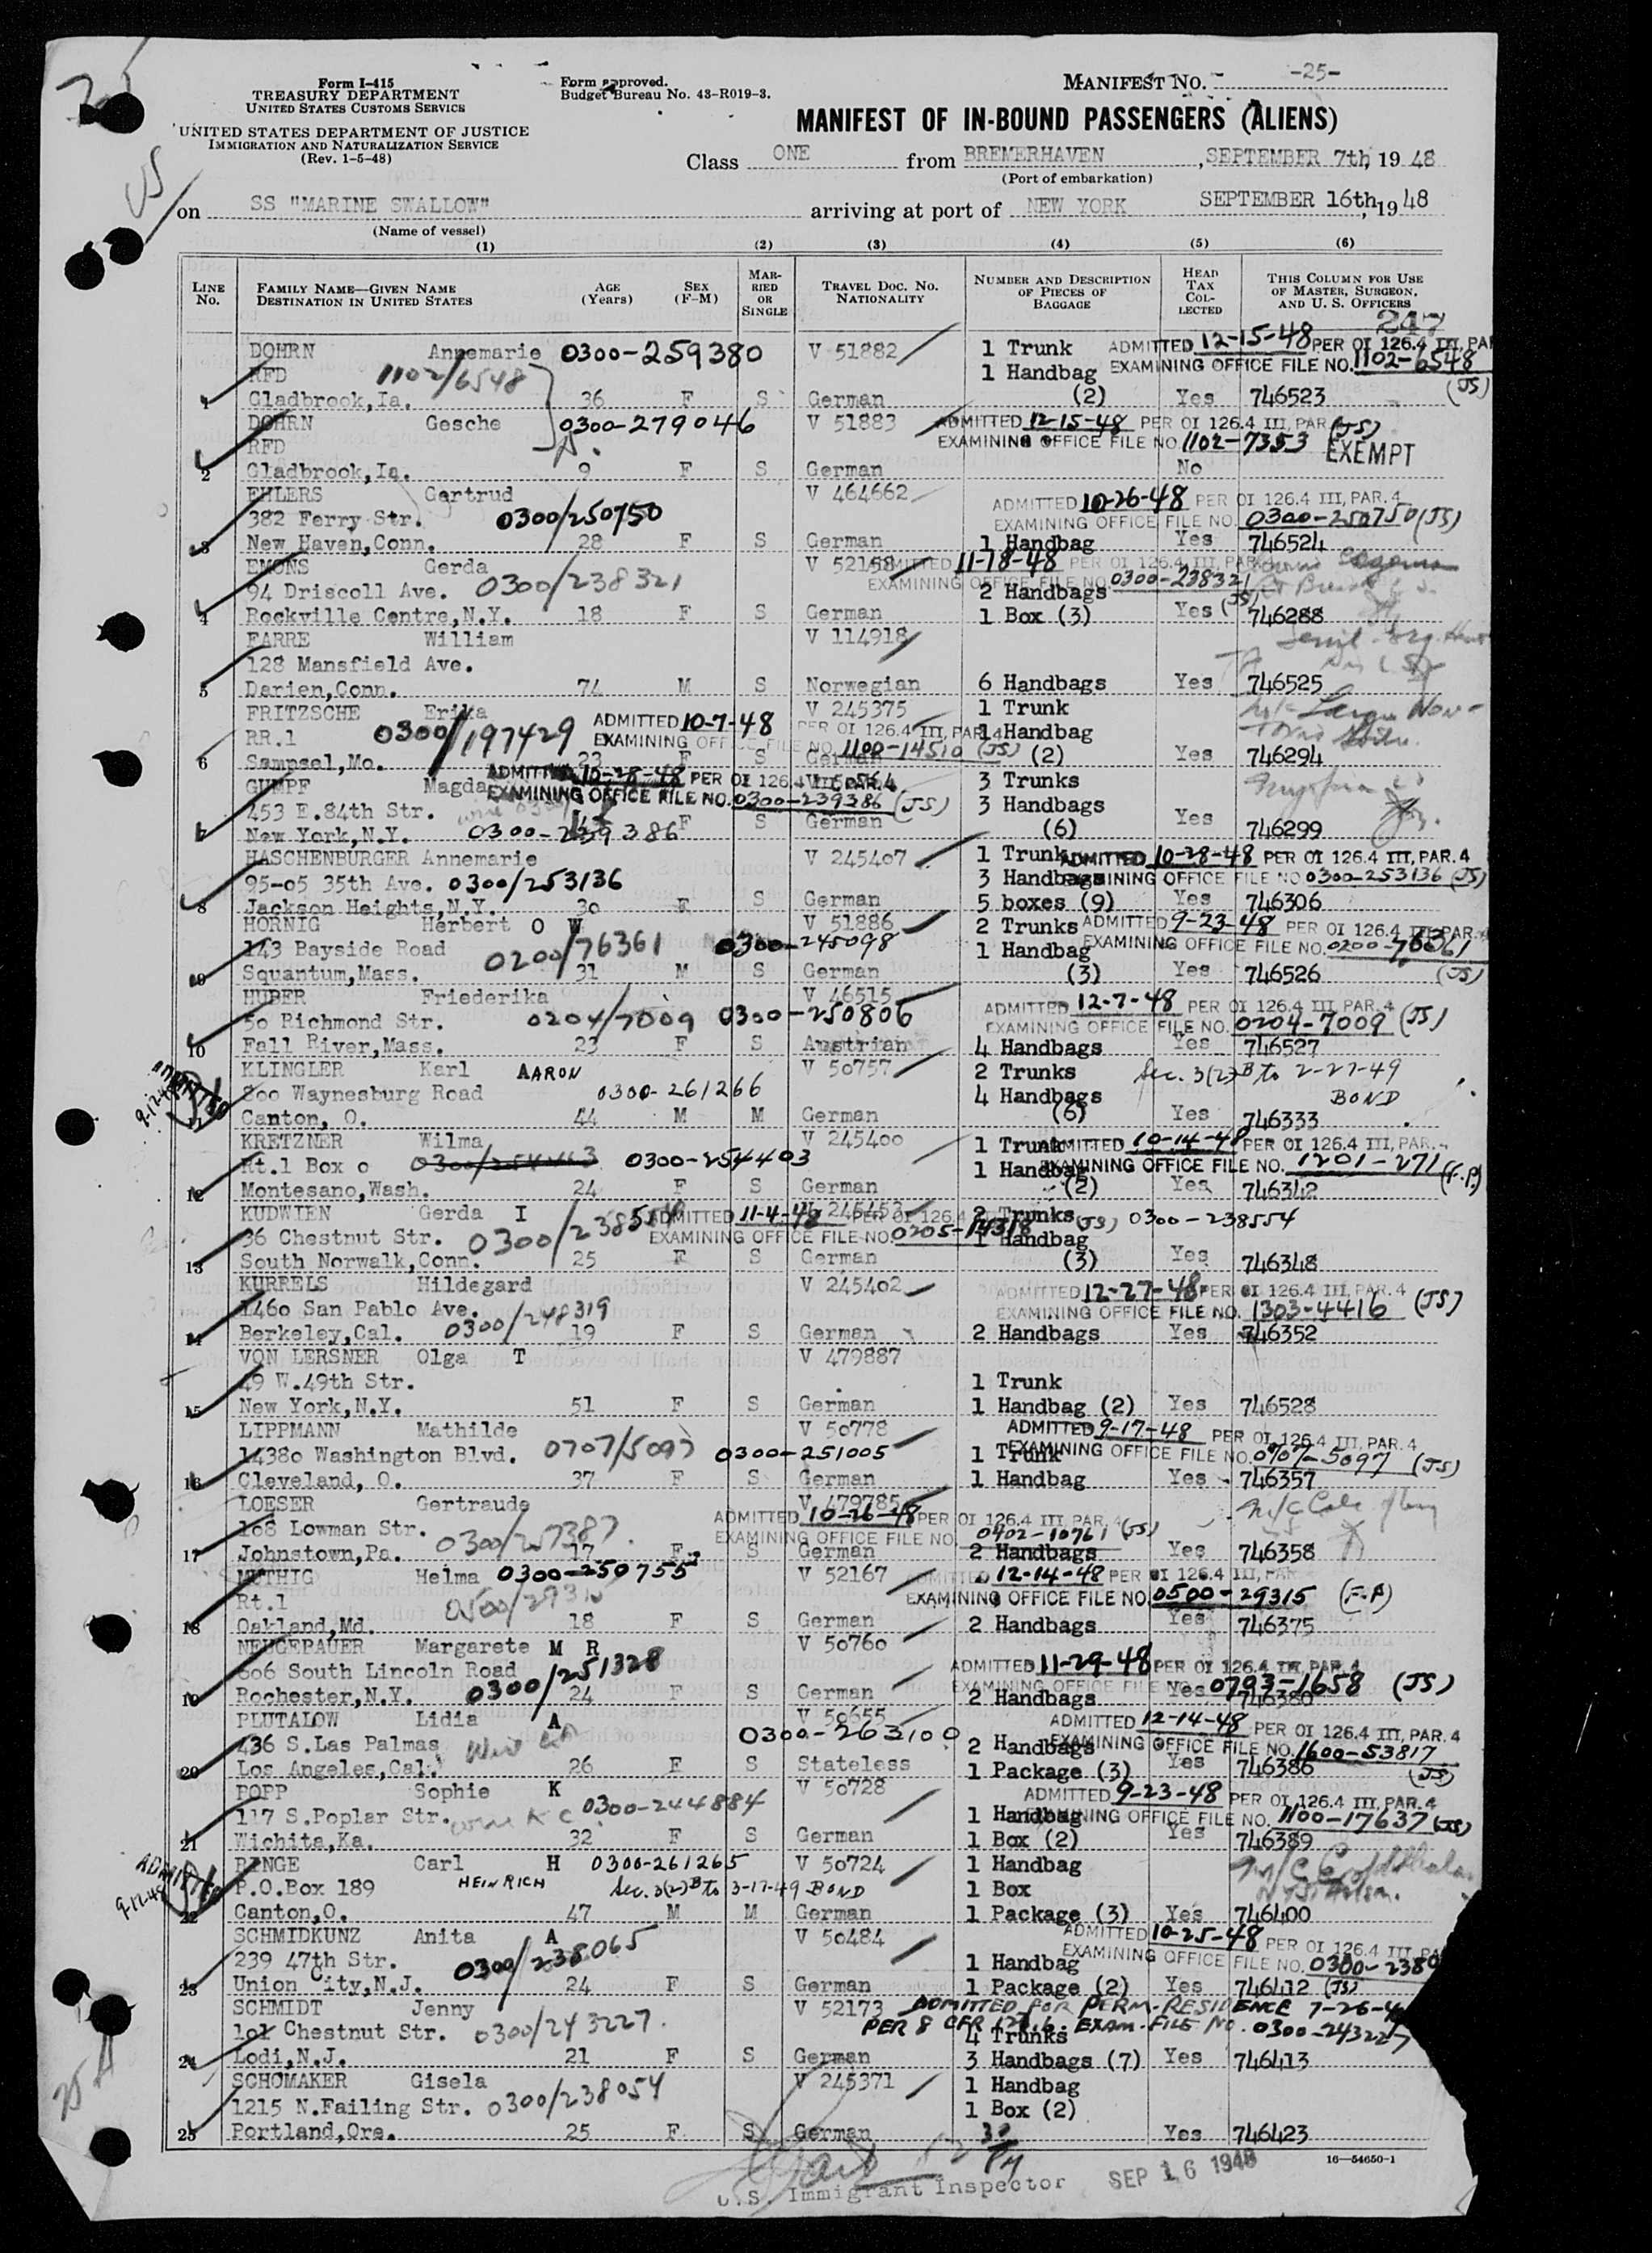 25
Form I-415
TREASURY DEPARTMENT
UNITED STATES CUSTOMS SERVICE
UNITED STATES DEPARTMENT OF JUSTICE
IMMIGRATION AND NATURALIZATION SERVICE
(Rev. 1-5-48)
Form approved.
Budget Bureau No. 43-R019-3.
MANIFEST NO. -25-
MANIFEST OF IN-BOUND PASSENGERS (ALIENS)
Class ONE from BREMERHAVEN, SEPTEMBER 7th, 1948
(Port of embarkation)
US
on SS "MARINE SWALLOW" arriving at port of NEW YORK SEPTEMBER 16th, 1948
(Name of vessel)
(1) (2) (3) (4) (5) (6)
LINE No.
FAMILY NAME—GIVEN NAME
DESTINATION IN UNITED STATES
AGE (Years)
SEX (F-M)
MARRIED OR SINGLE
TRAVEL DOC. NO.
NATIONALITY
NUMBER AND DESCRIPTION OF PIECES OF BAGGAGE
HEAD TAX COLLECTED
THIS COLUMN FOR USE OF MASTER, SURGEON, AND U. S. OFFICERS
247
DOHRN Annemarie 0300-259380 V 51882 1 Trunk ADMITTED 12-15-48 PER OI 126.4 III, PAR
RFD 1102/6548 1 Handbag EXAMINING OFFICE FILE NO. 1102-6548 (JS)
1 Gladbrook,Ia. 36 F S German (2) Yes 746523
DOHRN Gesche 0300-279046 V 51883 ADMITTED 12-15-48 PER OI 126.4 III, PAR (JS)
RFD EXAMINING OFFICE FILE NO 1102-7353 EXEMPT
2 Gladbrook,Ia. 9 F S German No
EHLERS Gertrud V 464662 ADMITTED 10-26-48 PER OI 126.4 III, PAR. 4
382 Ferry Str. 0300/250750 EXAMINING OFFICE FILE NO. 0300-250750 (JS)
3 New Haven,Conn. 28 F S German 1 Handbag Yes 746524
EMONS Gerda V 52158 ADMITTED 11-18-48 PER OI 126.4 III, PAR
94 Driscoll Ave. 0300/238321 EXAMINING OFFICE FILE NO. 0300-238321 (JS)
2 Handbags
4 Rockville Centre,N.Y. 18 F S German 1 Box (3) Yes 746288
FARRE William V 114918
128 Mansfield Ave.
5 Darien,Conn. 74 M S Norwegian 6 Handbags Yes 746525
FRITZSCHE Erika V 245375 1 Trunk
ADMITTED 10-7-48 PER OI 126.4 III, PAR. 4
RR.1 0300/197429 1 Handbag
EXAMINING OFFICE FILE NO. 1100-14510 (JS)
6 Sampsel,Mo. 23 F S German (2) Yes 746294
GUMPF Magda 3 Trunks
ADMITTED 10-28-48 PER OI 126.4 III, PAR. 4
453 E.84th Str. EXAMINING OFFICE FILE NO. 0300-239386 (JS) 3 Handbags
7 New York,N.Y. 0300-239386 F S German (6) Yes 746299
HASCHENBURGER Annemarie V 245407 1 Trunk ADMITTED 10-28-48 PER OI 126.4 III, PAR. 4
95-05 35th Ave. 0300/253136 3 Handbags EXAMINING OFFICE FILE NO 0300-253136 (JS)
8 Jackson Heights,N.Y. 30 F S German 5 boxes (9) Yes 746306
HORNIG Herbert O W V 51886 2 Trunks ADMITTED 9-23-48 PER OI 126.4 III, PAR.
143 Bayside Road 0200/76361 0300-245098 1 Handbag EXAMINING OFFICE FILE NO. 0200-76361 (JS)
9 Squantum,Mass. 31 M S German (3) Yes 746526
HUBER Friederika V 46515 ADMITTED 12-7-48 PER OI 126.4 III, PAR. 4
50 Richmond Str. 0204/7009 0300-250806 EXAMINING OFFICE FILE NO. 0204-7009 (JS)
10 Fall River,Mass. 23 F S Austrian 4 Handbags Yes 746527
KLINGLER Karl AARON V 50757 2 Trunks Sec. 3(2)B to 2-27-49
ADMITTED 9-17-48
800 Waynesburg Road 0300-261266 4 Handbags BOND
11 Canton, O. 44 M M German (6) Yes 746333
KRETZNER Wilma V 245400 1 Trunk ADMITTED 10-14-48 PER OI 126.4 III, PAR. 4
Rt.1 Box o 0300-254403 1 Handbag EXAMINING OFFICE FILE NO. 1201-271 (F.P.)
12 Montesano,Wash. 24 F S German (2) Yes 746342
KUDWIEN Gerda I ADMITTED 11-4-48 PER OI 126.4 2 Trunks (JS) 0300-238554
36 Chestnut Str. 0300/238554 EXAMINING OFFICE FILE NO. 0205-14318 1 Handbag
13 South Norwalk,Conn. 25 F S German (3) Yes 746348
KURRELS Hildegard V 245402 ADMITTED 12-27-48 PER OI 126.4 III, PAR. 4
1460 San Pablo Ave. 0300/248319 EXAMINING OFFICE FILE NO. 1303-4416 (JS)
14 Berkeley,Cal. 19 F S German 2 Handbags Yes 746352
VON LERSNER Olga T V 479887
49 W.49th Str. 1 Trunk
15 New York,N.Y. 51 F S German 1 Handbag (2) Yes 746528
LIPPMANN Mathilde V 50778 ADMITTED 9-17-48 PER OI 126.4 III, PAR. 4
14380 Washington Blvd. 0707/5097 0300-251005 1 Trunk EXAMINING OFFICE FILE NO. 0707-5097 (JS)
16 Cleveland, O. 37 F S German 1 Handbag Yes 746357
LOESER Gertraude V 479785
ADMITTED 10-26-48 PER OI 126.4 III, PAR. 4
168 Lowman Str. 0300/257387 EXAMINING OFFICE FILE NO. 0402-10761 (JS)
17 Johnstown,Pa. 17 F S German 2 Handbags Yes 746358
MUTHIG Helma 0300-250755 V 52167 12-14-48 PER OI 126.4 III, PAR
Rt.1 0500/29315 EXAMINING OFFICE FILE NO 0500-29315 (F.P)
18 Oakland,Md. 18 F S German 2 Handbags Yes 746375
NEUGEPAUER Margarete M R V 50760
606 South Lincoln Road 0300/251328 ADMITTED 11-29-48 PER OI 126.4 III, PAR. 4
EXAMINING OFFICE FILE NO 0703-1658 (JS)
19 Rochester,N.Y. 24 F S German 2 Handbags Yes 746380
PLUTALOW Lidia A V 50655 ADMITTED 12-14-48 PER OI 126.4 III, PAR. 4
436 S.Las Palmas 0300-263100 2 Handbags EXAMINING OFFICE FILE NO. 1600-53817 (JS)
20 Los Angeles,Cal. 26 F S Stateless 1 Package (3) Yes 746386
POPP Sophie K V 50728 ADMITTED 9-23-48 PER OI 126.4 III, PAR. 4
117 S.Poplar Str. wire K C 0300-244884 1 Handbag EXAMINING OFFICE FILE NO. 1100-17637 (JS)
21 Wichita,Ka. 32 F S German 1 Box (2) Yes 746389
RINGE Carl H 0300-261265 V 50724 1 Handbag
ADMITTED 9-17-48
P.O.Box 189 HEINRICH Sec. 3(2)B to 3-17-49 BOND 1 Box
22 Canton,O. 47 M M German 1 Package (3) Yes 746400
SCHMIDKUNZ Anita A V 50484 ADMITTED 10-25-48 PER OI 126.4 III, PA
239 47th Str. 0300/238065 1 Handbag EXAMINING OFFICE FILE NO. 0300-2380
23 Union City,N.J. 24 F S German 1 Package (2) Yes 746412 (JS)
SCHMIDT Jenny V 52173 ADMITTED FOR PERM. RESIDENCE 7-26-4
101 Chestnut Str. 0300/243227 4 Trunks PER 8 CFR 128.6. EXAM. FILE NO. 0300-243227
24 Lodi,N.J. 21 F S German 3 Handbags (7) Yes 746413
SCHOMAKER Gisela V 245371 1 Handbag
1215 N.Failing Str. 0300/238054 1 Box (2)
25 Portland,Ore. 25 F S German Yes 746423
16—54650-1
U.S. Immigrant Inspector SEP 16 1948